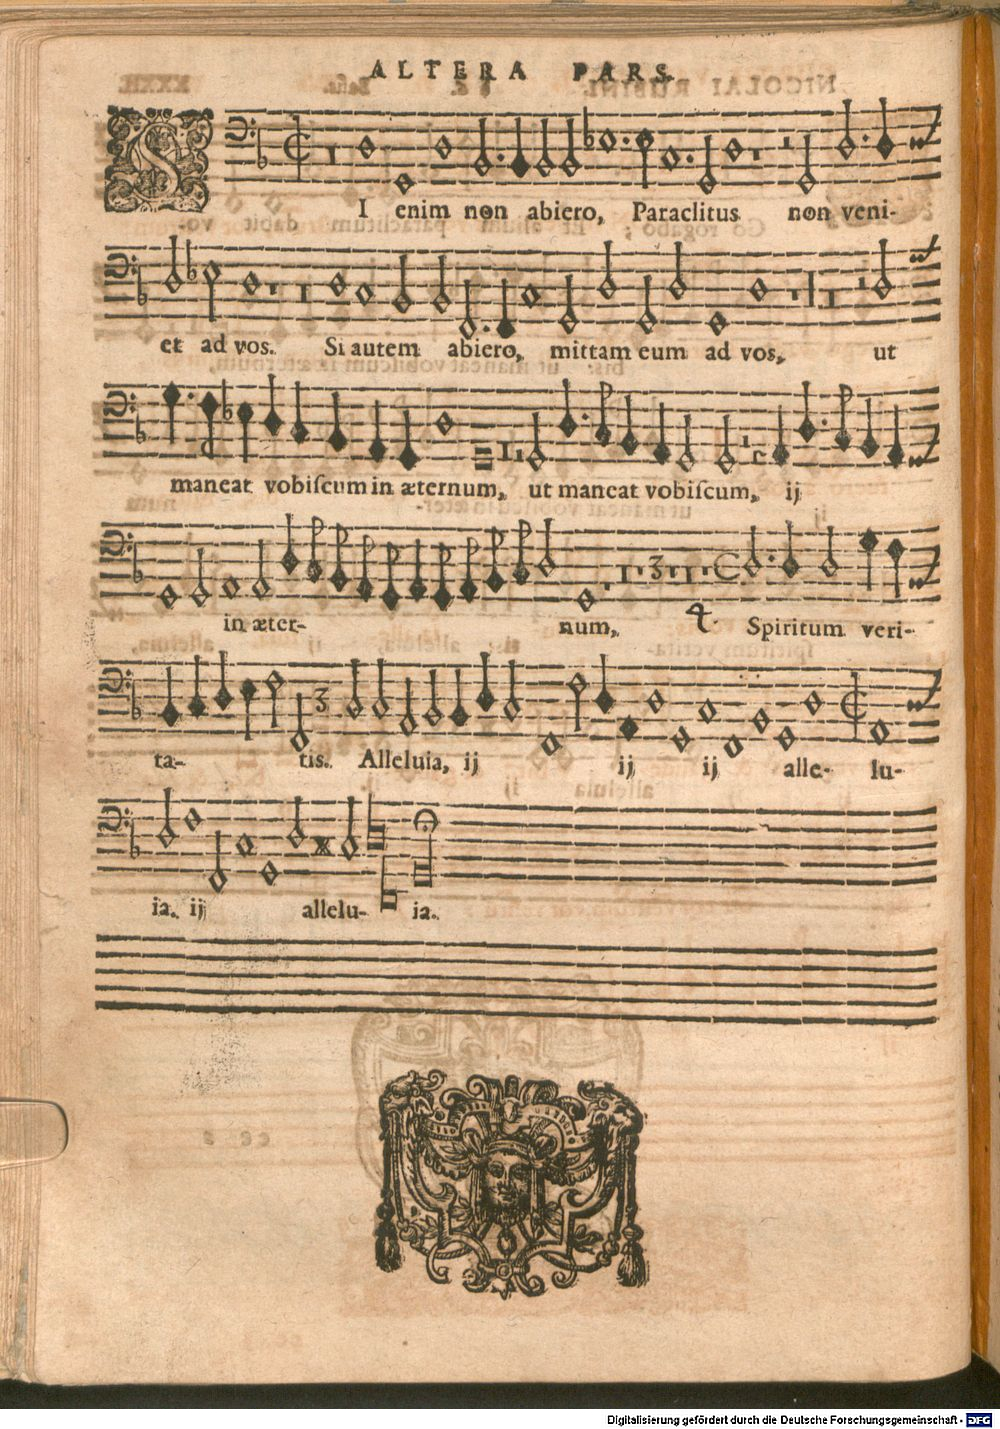 ALTERA PARS.
SI enim non abiero, Paraclitus non veni-
et ad vos. Si autem abiero, mittam eum ad vos, ut
maneat vobiſcum in æternum, ut maneat vobiſcum, ij
in æter- num, Spiritum veri-
ta- tis. Alleluia, ij ij ij alle- lu-
ia. ij allelu- ia.
Digitalisierung gefördert durch die Deutsche Forschungsgemeinschaft - DFG